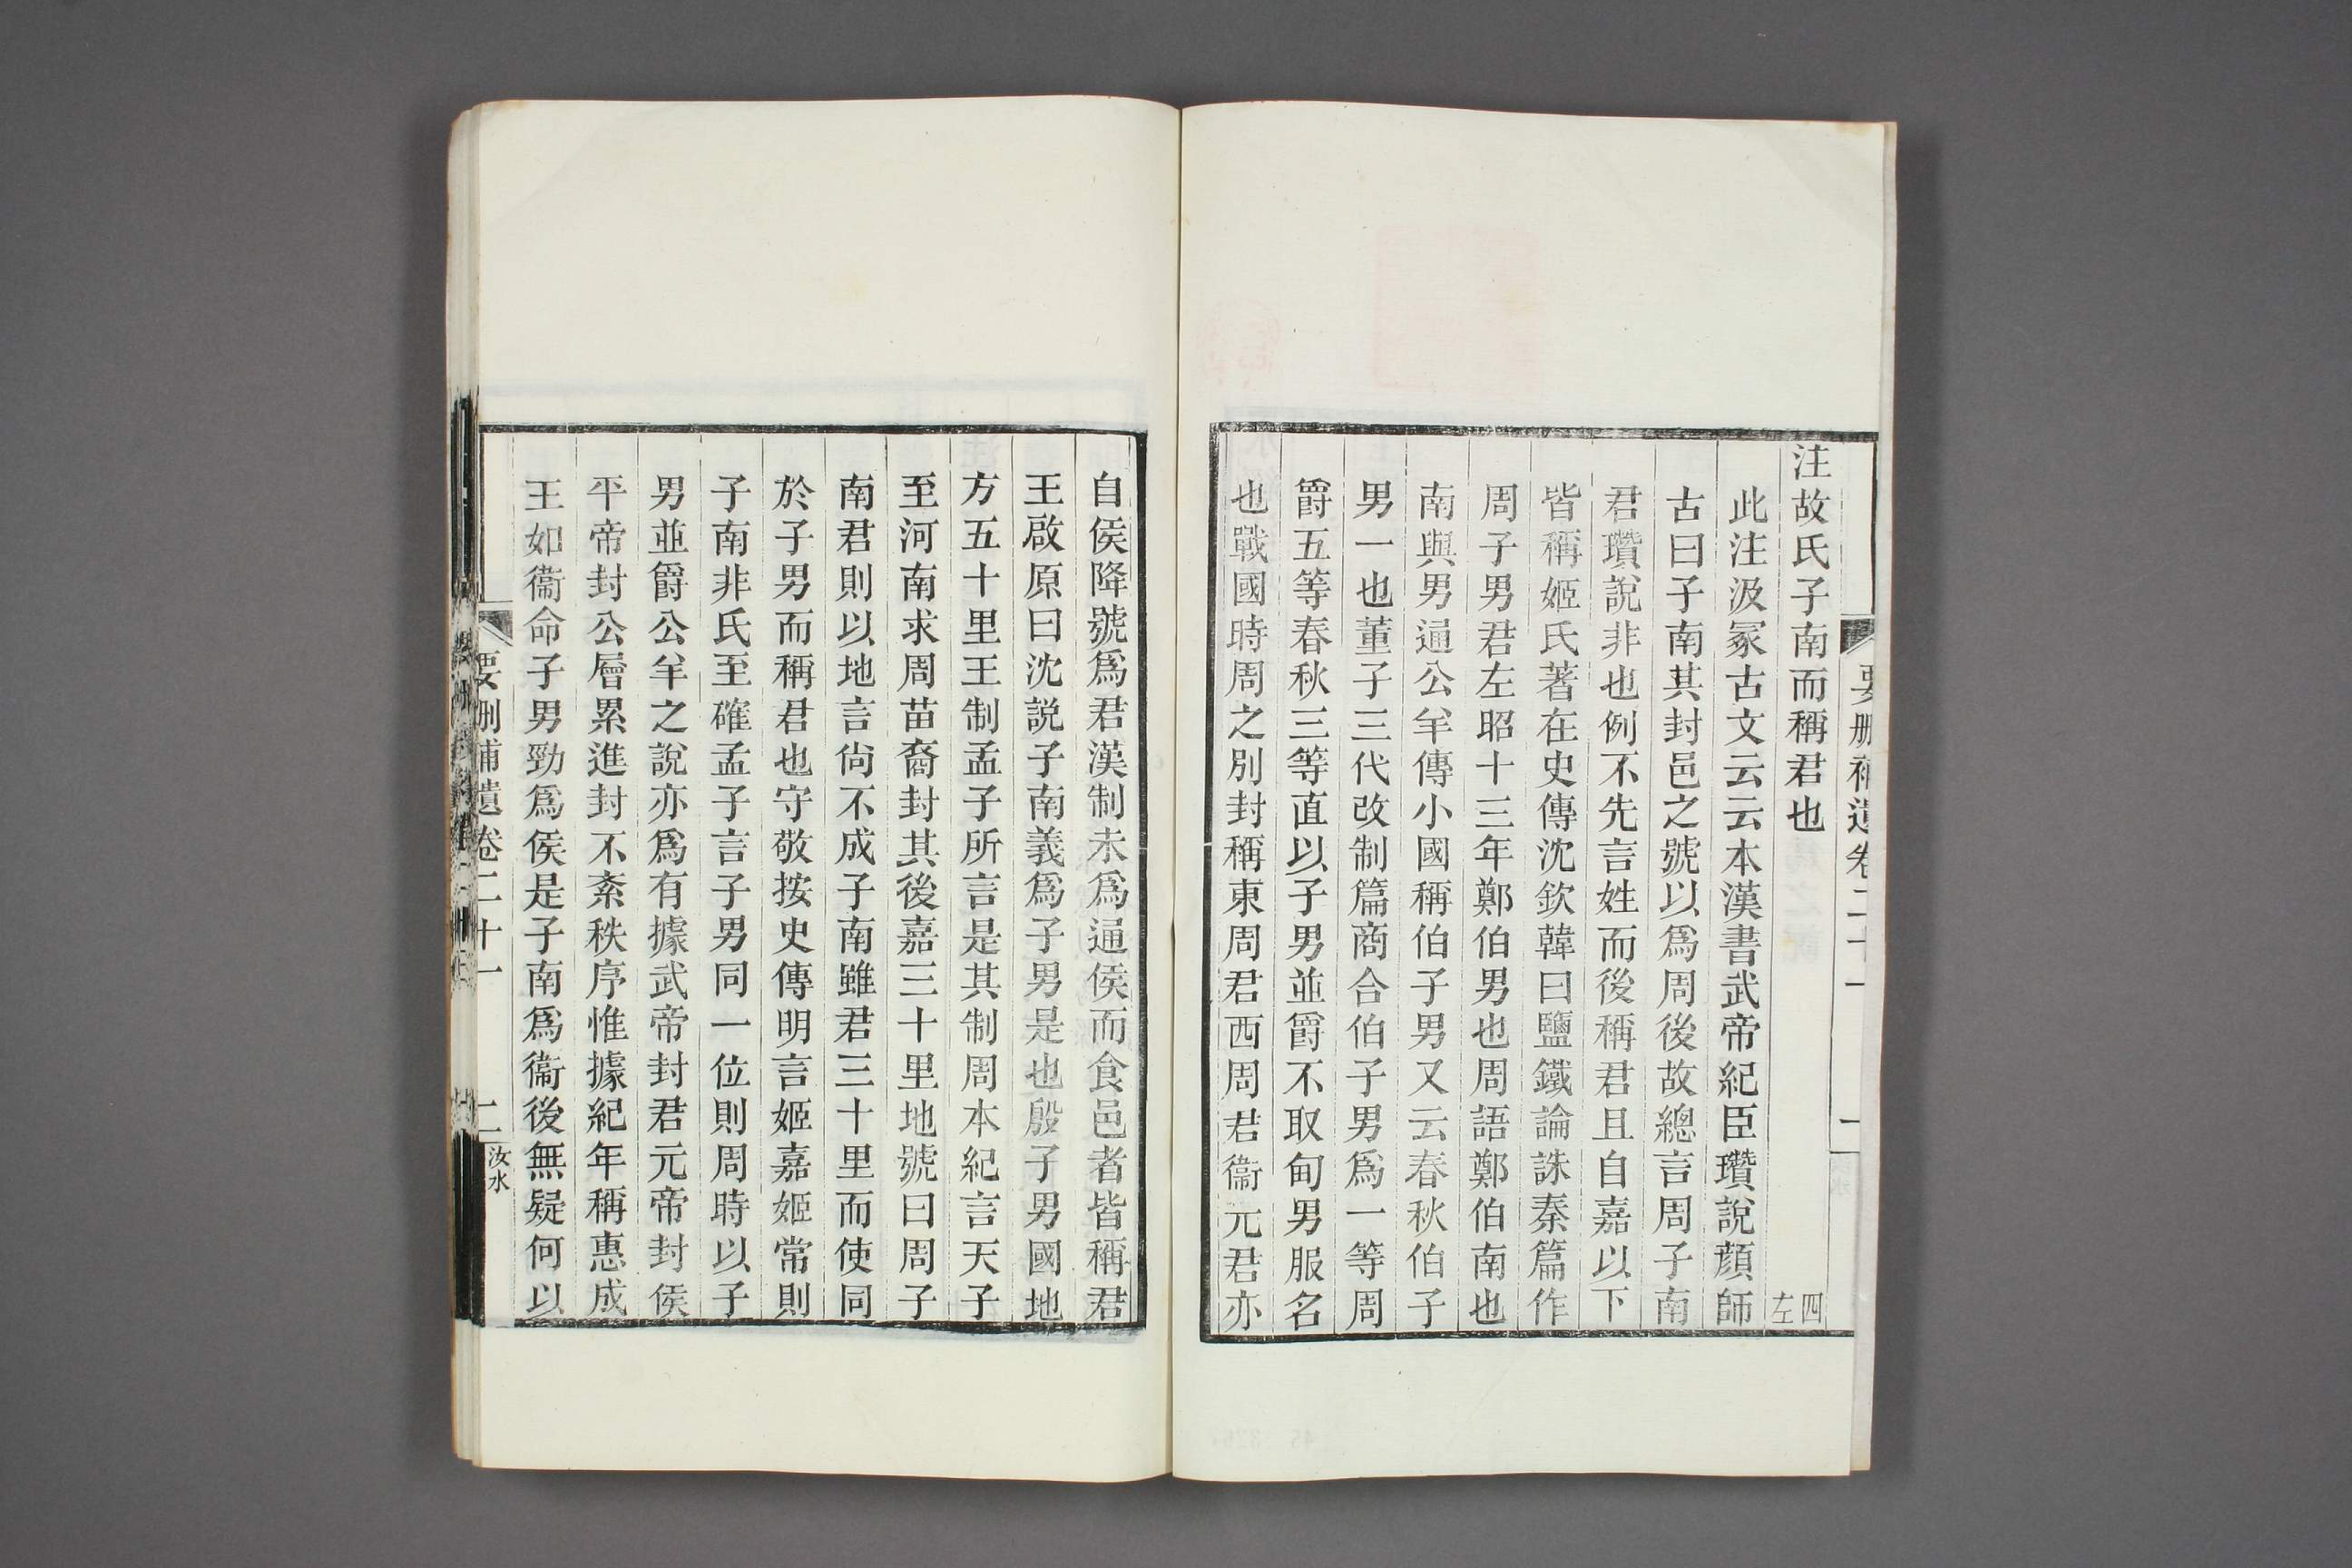 要刪補遺卷二十一 一
注故氏子南而稱君也 四左
此注汲冢古文云云本漢書武帝紀臣瓚說顏師
古曰子南其封邑之號以爲周後故總言周子南
君瓚說非也例不先言姓而後稱君且自嘉以下
皆稱姬氏著在史傳沈欽韓曰鹽鐵論誅秦篇作
周子男君左昭十三年鄭伯男也周語鄭伯南也
南與男通公羊傳小國稱伯子男又云春秋伯子
男一也董子三代改制篇商合伯子男爲一等周
爵五等春秋三等直以子男並爵不取甸男服名
也戰國時周之別封稱東周君西周君衞元君亦
自侯降號爲君漢制未爲通侯而食邑者皆稱君
王啟原曰沈說子南義爲子男是也殷子男國地
方五十里王制孟子所言是其制周本紀言天子
至河南求周苗裔封其後嘉三十里地號曰周子
南君則以地言尙不成子南雖君三十里而使同
於子男而稱君也守敬按史傳明言姬嘉姬常則
子南非氏至確孟子言子男同一位則周時以子
男並爵公羊之說亦爲有據武帝封君元帝封侯
平帝封公層累進封不紊秩序惟據紀年稱惠成
王如衞命子男勁爲侯是子南爲衞後無疑何以
要刪補遺卷二十一 二 汝水